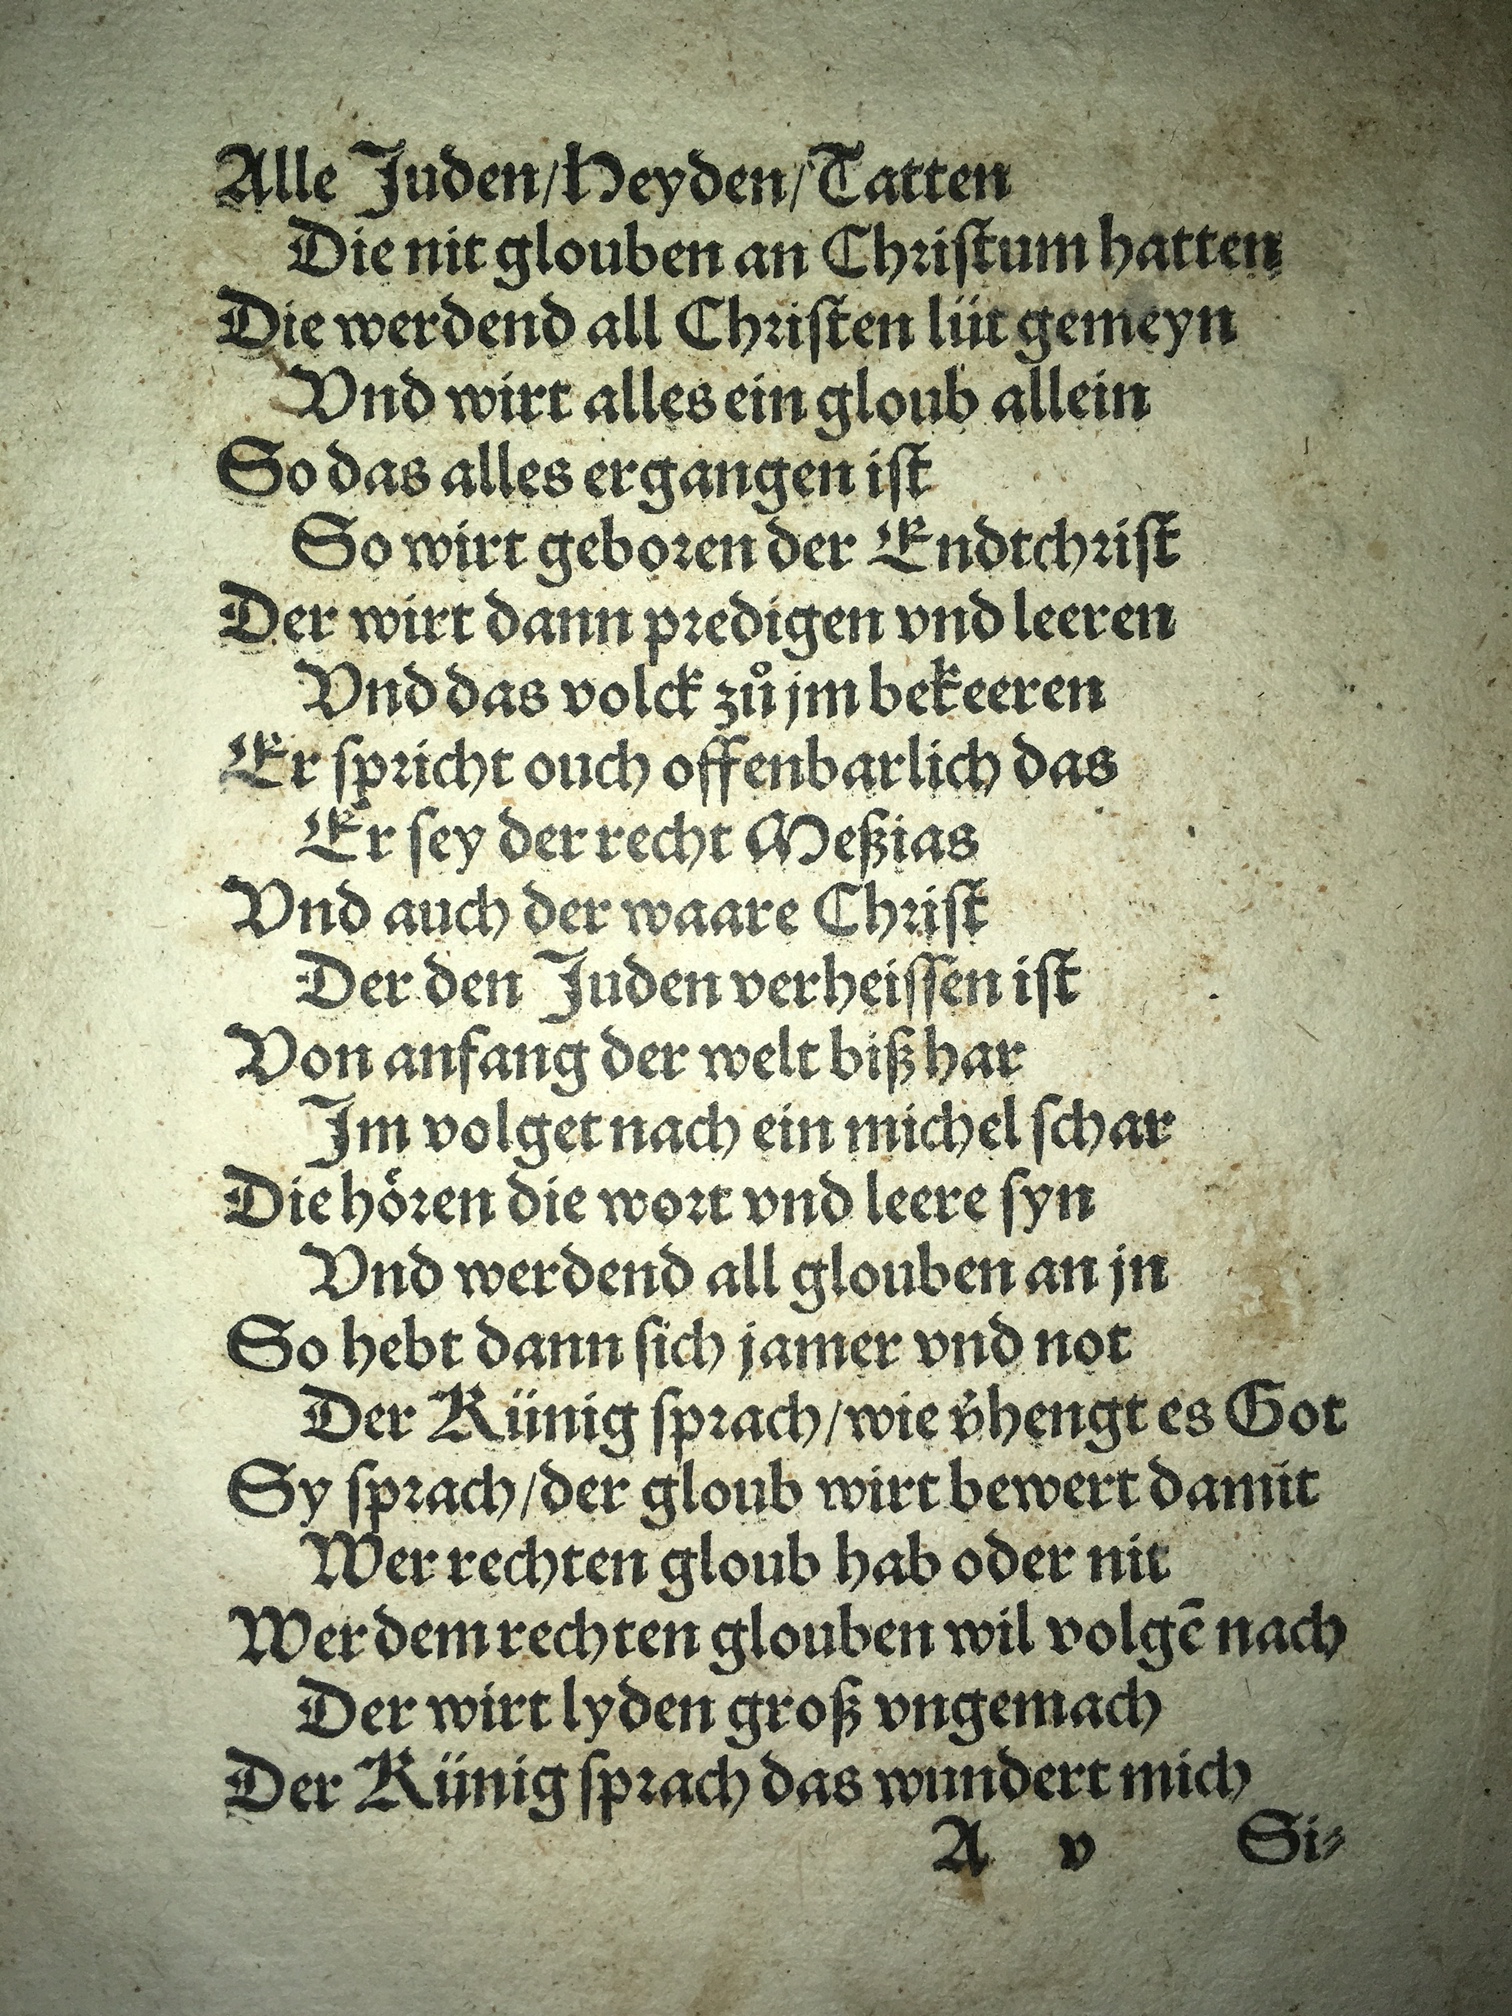 Alle Juden/Heyden/Tatten
Die nit glouben an Chriſtum hatten
Die werdend all Chriſten lüt gemeyn
Vnd wirt alles ein gloub allein
So das alles ergangen iſt
So wirt geboꝛen der Endtchꝛiſt
Der wirt dann pꝛedigen vnd leeren
Vnd das volck zů jm bekeeren
Er ſpꝛicht ouch offenbarlich das
Er ſey der recht Meßias
Vnd auch der waare Chꝛiſt
Der den Juden verheiſſen iſt
Von anfang der welt biß har
Jm volget nach ein michel ſchar
Die hoͤꝛen die woꝛt vnd leere ſyn
Vnd werdend all glouben an jn
So hebt dann ſich jamer vnd not
Der Künig ſpꝛach/wie v̓hengt es Got
Sy ſpꝛach/der gloub wirt bewert damit
Wer rechten gloub hab oder nit
Wer dem rechten glouben wil volgē nach
Der wirt lyden groß vngemach
Der Künig ſpꝛach das wundert mich
A v Si⸗